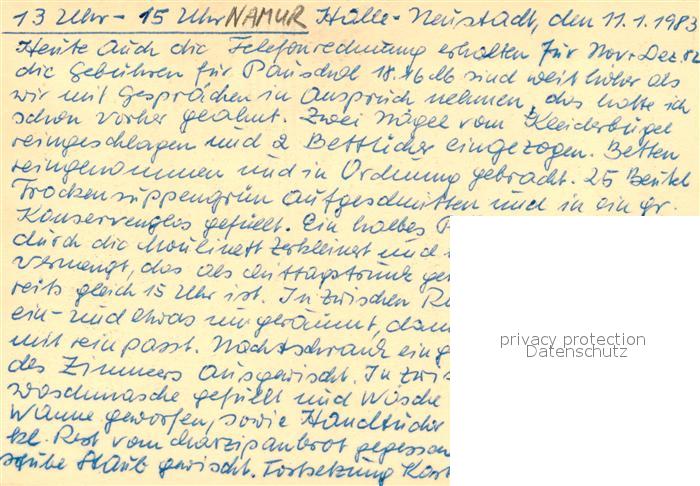 13 Uhr - 15 Uhr NAMUR Halle-Neustadt, den 11.1.1983
Heute auch die Telefonrechnung erhalten für Nov+Dez. 82
die Gebühren für Pauschal 18.46 M sind weit höher als
wir mit Gesprächen in Anspruch nehmen, das hatte ich
schon vorher geahnt. Zwei Nägel vom Kleiderbügel
reingeschlagen und 2 Bettücher eingezogen. Betten
reingenommen und in Ordnung gebracht. 25 Beutel
Trockensuppengrün aufgeschnitten und in ein gr.
Konservenglas gefüllt. Ein halbes
durch die Moulinett zerkleinert und
vermengt, das als Mittagstrunk
reits gleich 15 Uhr ist. Inzwischen
ein- und etwas umgeräumt,
mit reinpasst. Nachtschrank
des Zimmers ausgewischt. In
waschmasche gefüllt und Wäsche
Wanne geworfen, sowie Handtücher
kl. Rest vom Marzipanbrot gegessen
Staub gewischt. Fortsetzung
privacy protection
Datenschutz